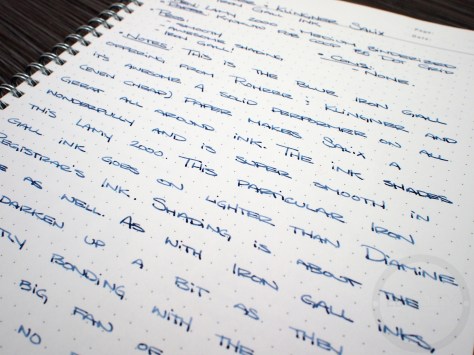 & Klingner Salix
Iron Gall Ink
Pen: Lamy 2000 - Medium Binderized
Paper: Rhodia Dot Grid
Pros: Cons:
- Smooth - None.
- Awesome shading
- Iron Gall!
• Notes: This is the blue iron gall
offering from Rohrer & Klingner and
its awesome. A solid performer on all
(even cheap) paper makes Salix a
great all around ink. The ink shades
wonderfully and is super smooth in
this Lamy 2000. This particular iron
gall ink goes on lighter than Diamine
Registrar's ink. Shading is about the
as well. As with iron gall inks,
darken up a bit as they
bonding with the
big fan of
no